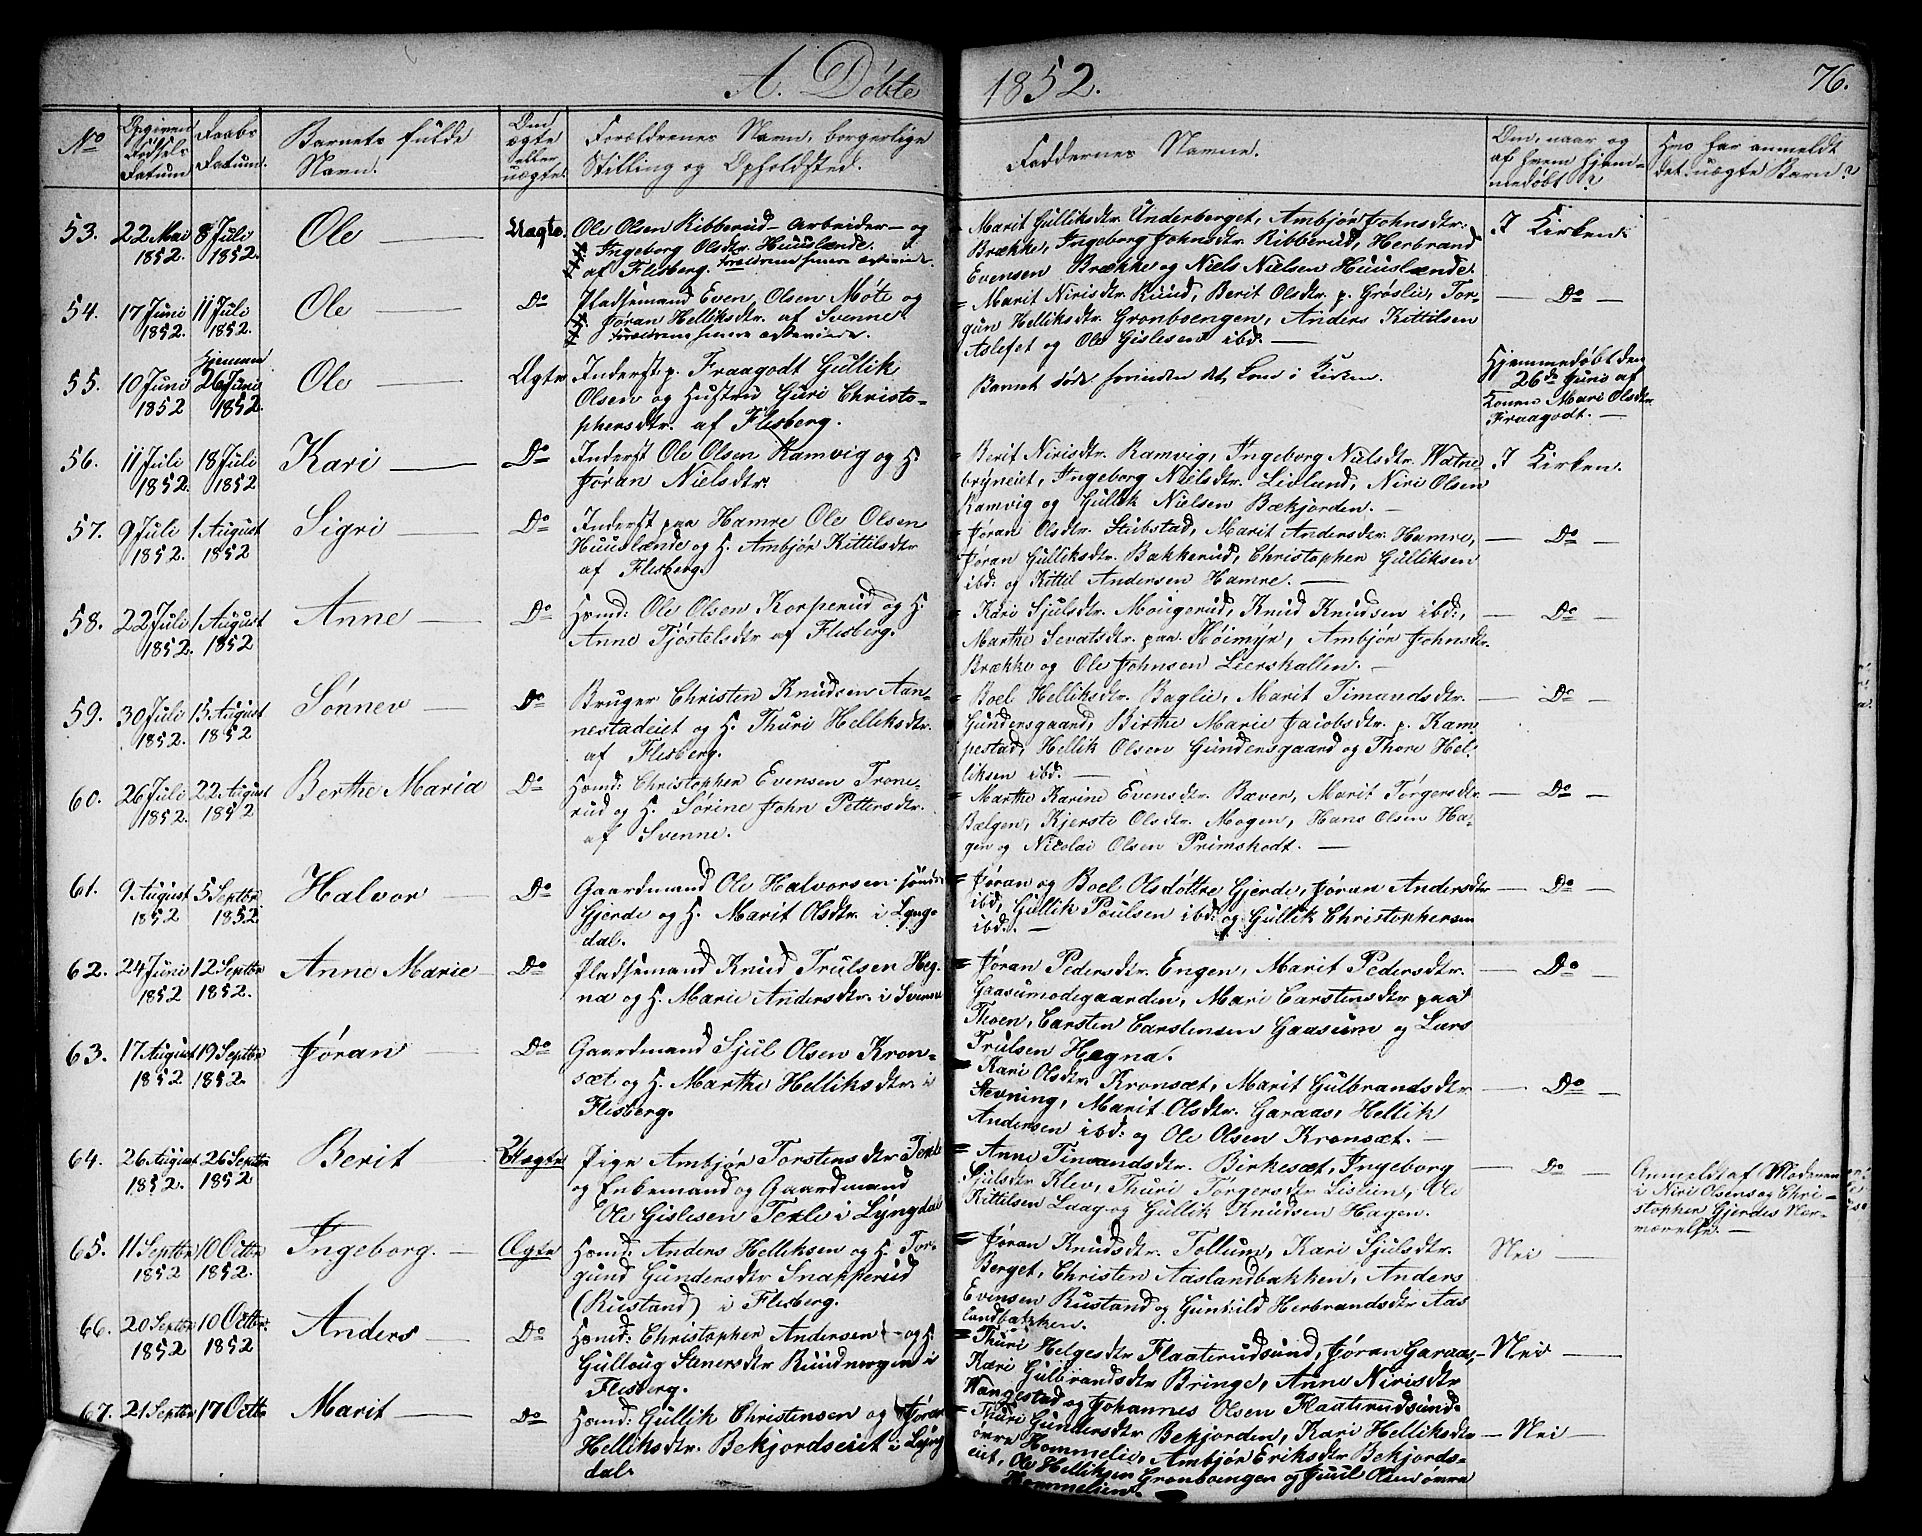 A. Døbte 1852. 76.
No
Opgiven Fødsels Datum
Daabs Datum.
Barnets fulde Navn.
Om ægte eller uægte.
Forældrenes Navn, borgerlige Stilling og Opholdsted.
Faddernes Navne.
Om, naar og af hvem hjemmedøbt?
Hvo har anmeldt det uægte Barn?
53. 22 Mai 1852. 8 Juli 1852. Ole Uægte.
Ole Olsen Ribberud - Arbeider - og
Ingeborg Olsdtr. Huuslænde.
af Flesberg. Forældrene senere ægteviede.
Marit Gulliksdtr. Underberget, Ambjør Johnsdtr.
Brække, Ingeborg Johnsdtr. Ribberud, Herbrand
Evensen Brække og Niels Nielsen Huuslænde.
I Kirken.
54. 17 Juni 1852. 11 Juli 1852. Ole Do
Pladsemand Even Olsen Møti og
Jøran Helliksdtr. af Svenne.
Forældrene senere ægteviede.
Marit Nirisdtr. Ruud, Berit Olsdtr. p. Grøslie, Tor-
gun Helliksdtr. Grønboengen, Anders Kittilsen
Aslefet og Ole Gislesen ibd.
Do
55. 10 Juni 1852 Hjemme 26 Juni 1852. Ole Ægte
Inderst p. Fraagodt Gullik
Olsen og Hustru Guri Christo-
phersdtr. af Flesberg.
Barnet døde forinden det kom i Kirken.
Hjemmedøbt den
26de Juni af
Konen Mari Olsdtr
Fraagodt.
56. 11 Juli 1852. 18 Juli 1852 Kari Do
Inderst Ole Olsen Ramvig og H.
Jøran Nielsdtr.
Berit Nirisdtr. Ramvig, Ingeborg Nielsdtr. Watne-
bryneiet, Ingeborg Nielsdtr. Lieland, Niri Olsen
Ramvig og Gullik Nielsen Bækjorden.
I Kirken.
57. 9 Juli 1852. 1 August 1852 Sigri Do
Inderst paa Hamre Ole Olsen
Huuslænde og H. Ambjør Kittilsdtr
af Flesberg.
Jøran Olsdtr. Stubstad, Marit Andersdtr. Hamre,
Jøran Gulliksdtr. Bakkerud, Christopher Gulliksen
ibd: og Kittil Andersen Hamre.
Do
58. 22 Juli 1852. 1 August 1852 Anne Do
Hsmd: Ole Olsen Korperud og H.
Anne Tjøstelsdtr af Flesberg.
Kari Sjulsdtr. Mougerud, Knud Knudsen ibd:,
Marthe Sevatsdtr. paa Høimyr, Ambjør Johnsdtr.
Brække og Ole Johnsen Lierskallen.
Do
59. 30 Juli 1852. 15 August 1852 Sønnev Do
Bruger Christen Knudsen Aan-
nestadeiet og H. Thuri Helliksdtr.
af Flesberg.
Boel Helliksdtr. Baglie, Marit Timandsdtr.
Gundersgaard, Birthe Marie Jacobsdtr. p. Kam-
pestad, Hellik Olsen Gundersgaard og Thore Hel-
liksen ibd.
Do
60. 26 Juli 1852. 22 August 1852 Berthe Maria Do
Hsmd: Christopher Evensen Trone-
rud og H. Sørine John Pettersdtr.
af Svenne.
Marthe Karine Evensdtr. Bæver, Marit Torgersdtr.
Bælgen, Kjersti Olsdtr. Mogen, Hans Olsen Ha-
gen og Nicolai Olsen Primskodt.
Do
61. 9 August 1852 5 Septbr 1852. Halvor Do
Gaardmand Ole Halvorsen søndre
Gjerde og H. Marit Olsdtr. i Lyng-
dal.
Jøran og Boel Olsdøttre Gjerde, Jøran Andersdtr
ibd, Gullik Poulsen ibd: og Gullik Christophersen
ibd:
Do
62. 24 Juni 1852 12 Septbr 1852. Anne Marie Do
Pladsemand Knud Trulsen Heg-
na og H. Marie Andersdtr. i Svenne
Jøran Pedersdtr. Engen, Marit Pedersdtr.
Gaasumodegaarden, Mari Carstensdtr paa
Thoen, Carsten Carstensen Gaasum og Lars
Trulsen Hegna.
Do
63. 17 August 1852 19 Septbr 1852. Jøran Do
Gaardmand Sjul Olsen Kron-
sæt og H. Marthe Helliksdtr. i
Flesberg.
Kari Olsdtr. Kronsæt, Marit Gulbrandsdtr
Stevning, Marit Olsdtr. Garaas, Hellik
Andersen ibd: og Ole Olsen Kronsæt.
Do
64. 26 August 1852. 26 Septbr 1852 Berit Uægte
Pige Ambjør Torstensdtr Texle
og Enkemand og Gaardmand
Ole Gislesen Texle i Lyngdal
Anne Timandsdtr. Birkesæt, Ingeborg
Sjulsdtr Klev, Thuri Torgersdtr Lislien, Ole
Kittilsen Laag og Gullik Knudsen Hagen.
Do
Anmeldt af Moderen
i Niri Olsens og Chri-
stopher Gjerdes Nær-
værelse.
65. 11 Septbr 1852 10 Octbr 1852. Ingeborg. Ægte
Hsmd: Anders Helliksen og H. Tor-
gund Gundersdtr Snapperud
(Rustand) i Flesberg.
Jøran Knudsdtr. Tollum, Kari Sjulsdtr.
Berget, Christen Aaslandbakken, Anders
Evensen Rustand og Gunhild Herbrandsdtr Aas
landbakken.
Nei
66. 20 Septbr 1852 10 Octbr. 1852 Anders Do
Hsmd: Christopher Andersen - og H.
Gulloug Stenersdtr Ruudnergen i
Flesberg.
Thuri Helgesdtr Flaaterudsund, Jøran Garaas,
Kari Gulbrandsdtr Bringe, Anne Nirisdtr
Wangestad og Johannes Olsen Flaaterudsund.
Nei
67. 21 Septbr 17 Octbr Marit Do
Hsmd: Gullik Christensen og Jøran
Helliksdtr. Bekjordseiet i Lyng
dal.
Thuri Gundersdtr Bekjorden, Kari Helliksdtr
øvre Hommelie, Ambjør Eriksdtr Bekjords-
eiet, Ole Helliksen Grønboengen og Juul Olsen øvre
Hommelien.
Nei